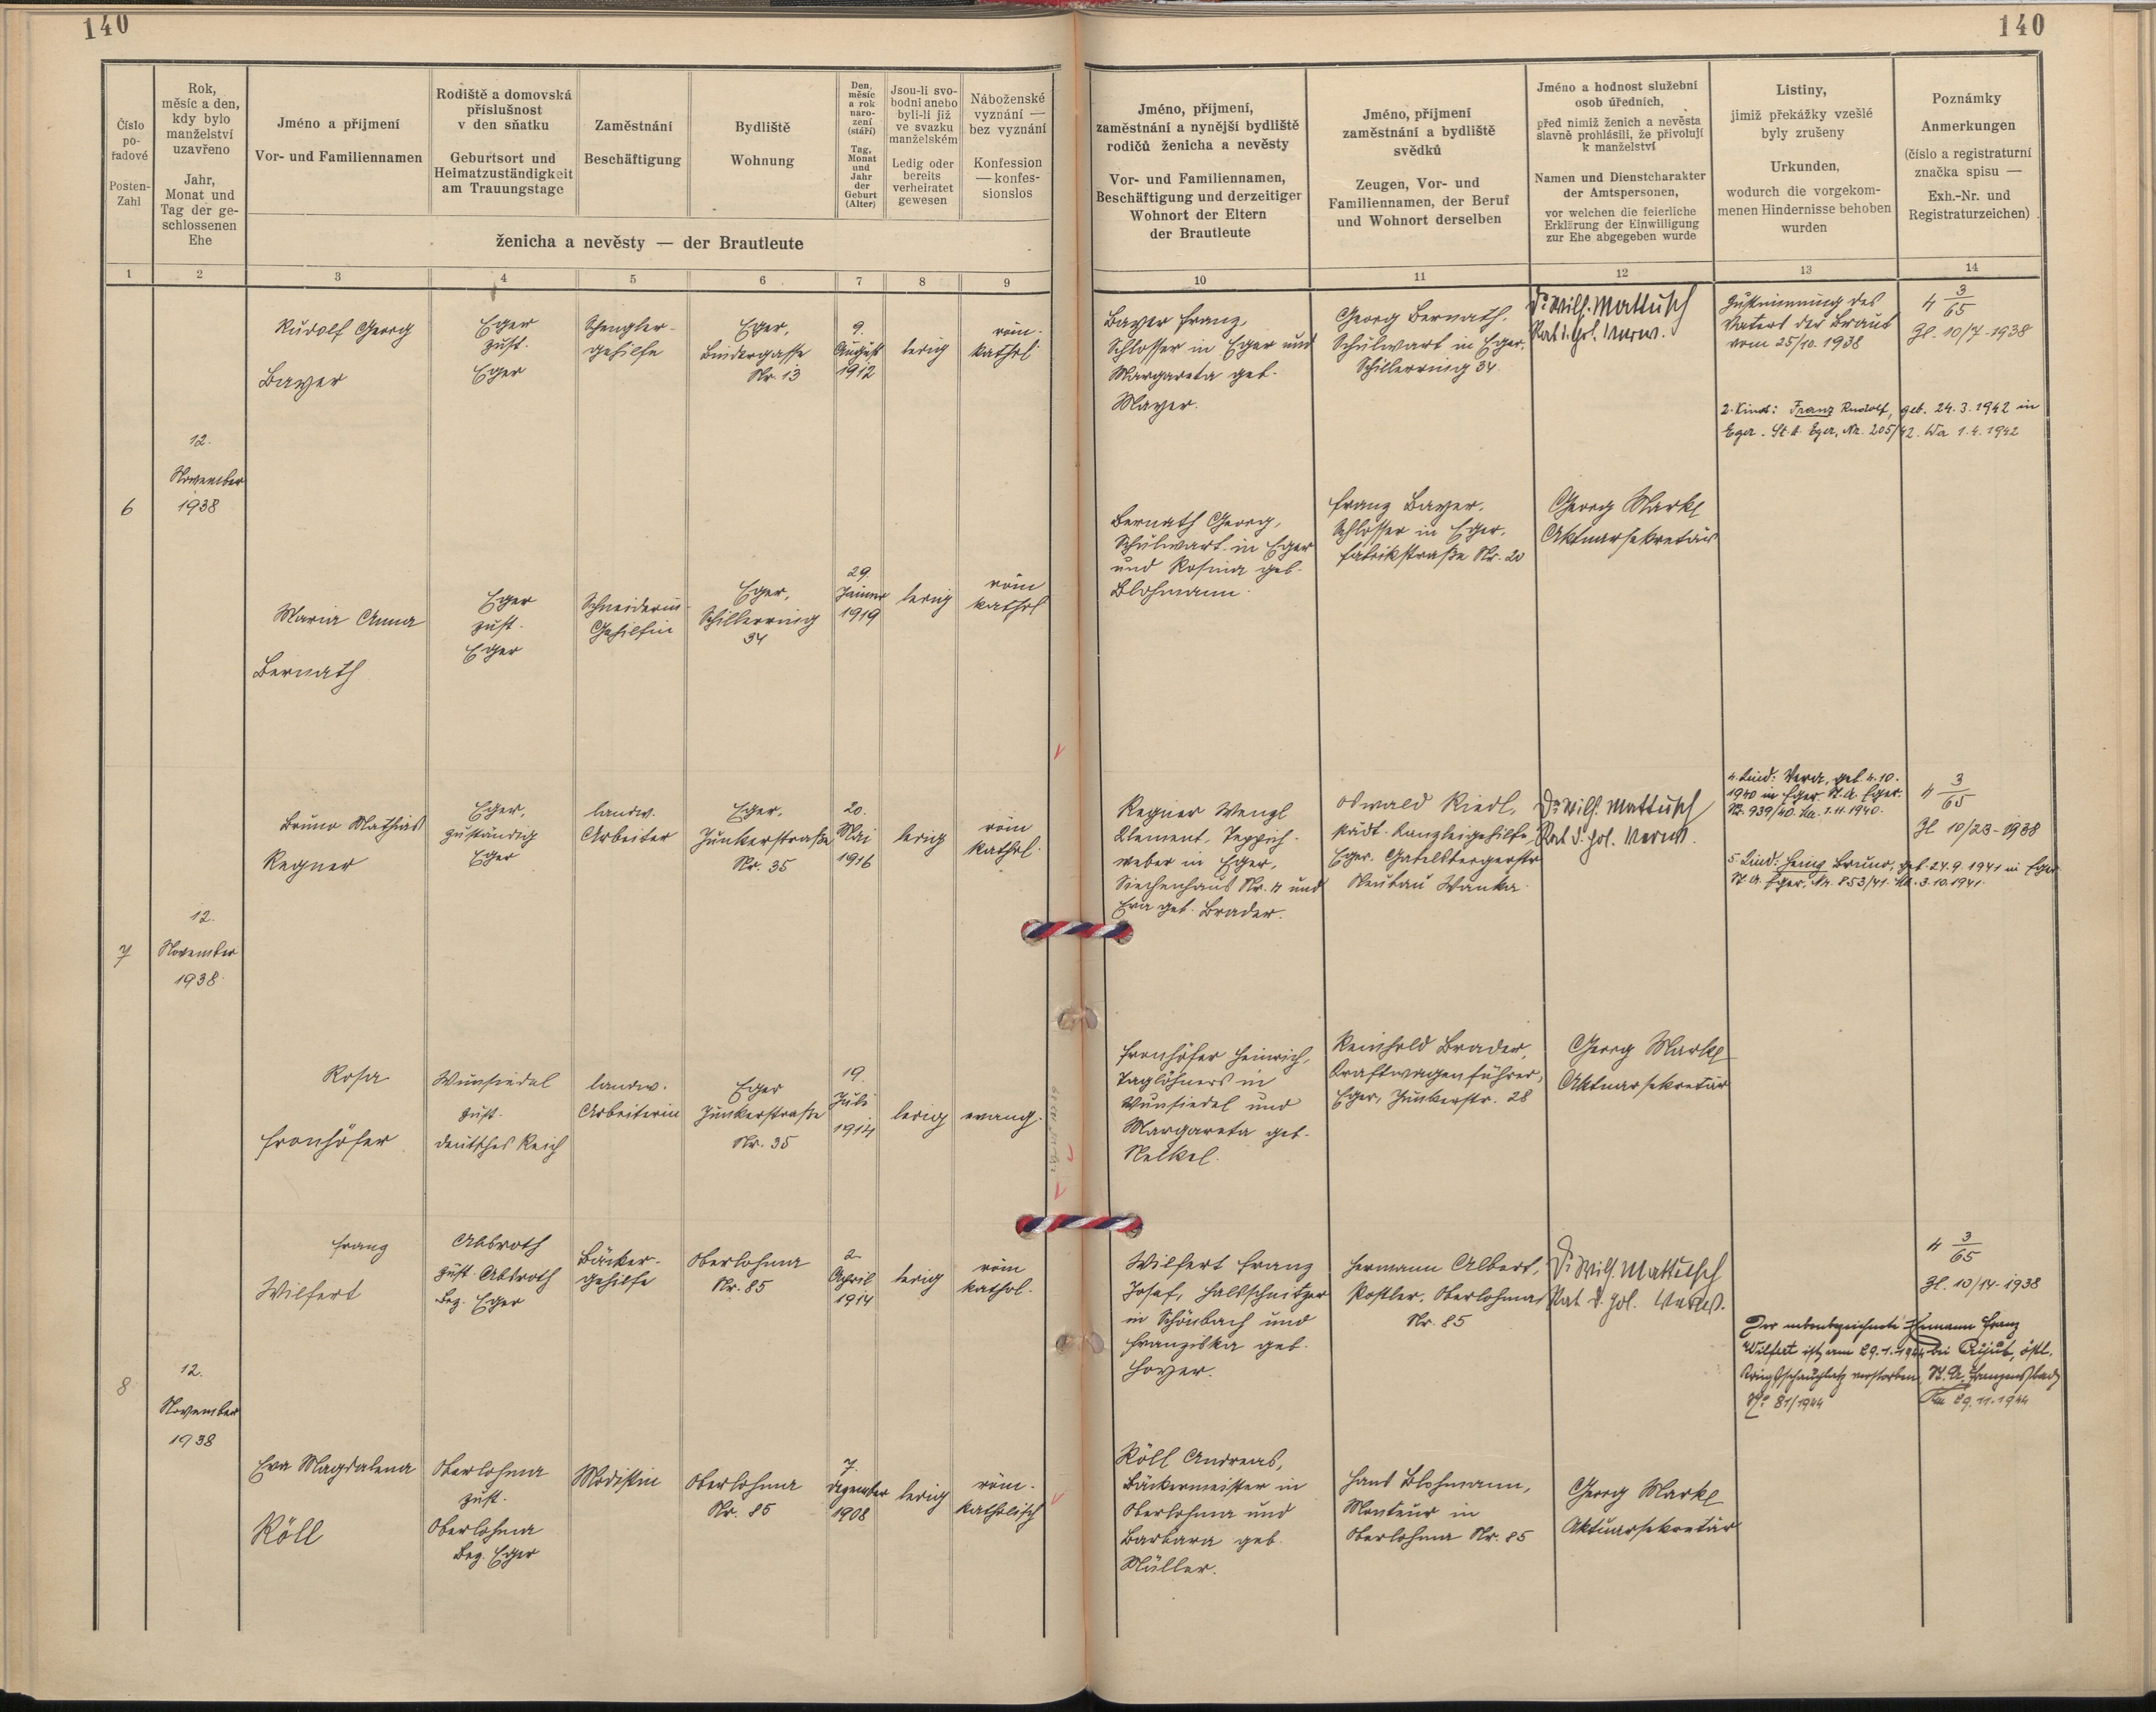 140
140
Číslo
po-
řadové
Posten-
Zahl
Rok,
měsíc a den,
kdy bylo
manželství
uzavřeno
Jahr,
Monat und
Tag der ge-
schlossenen
Ehe
Jméno a příjmení
Vor- und Familiennamen
Rodiště a domovská
příslušnost
v den sňatku
Geburtsort und
Heimatzuständigkeit
am Trauungstage
Zaměstnání
Beschäftigung
Bydliště
Wohnung
Den,
měsíc
a rok
naro-
zení
(stáří)
Tag,
Monat
und
Jahr
der
Geburt
(Alter)
Jsou-li svo-
bodni anebo
byli-li již
ve svazku
manželském
Ledig oder
bereits
verheiratet
gewesen
Náboženské
vyznání —
bez vyznání
Konfession
— konfes-
sionslos
ženicha a nevěsty — der Brautleute
Jméno, příjmení,
zaměstnání a nynější bydliště
rodičů ženicha a nevěsty
Vor- und Familiennamen,
Beschäftigung und derzeitiger
Wohnort der Eltern
der Brautleute
Jméno, příjmení
zaměstnání a bydliště
svědků
Zeugen, Vor- und
Familiennamen, der Beruf
und Wohnort derselben
Jméno a hodnost služební
osob úředních,
před nimiž ženich a nevěsta
slavně prohlásili, že přivolují
k manželství
Namen und Dienstcharakter
der Amtspersonen,
vor welchen die feierliche
Erklärung der Einwilligung
zur Ehe abgegeben wurde
Listiny,
jimiž překážky vzešlé
byly zrušeny
Urkunden,
wodurch die vorgekom-
menen Hindernisse behoben
wurden
Poznámky
Anmerkungen
(číslo a registraturní
značka spisu —
Exh.-Nr. und
Registraturzeichen)
1 2 3 4 5 6 7 8 9 10 11 12 13 14
6
12.
November
1938
Rudolf Georg
Bayer
Eger
zust.
Eger
Spengler-
gehilfe
Eger,
Bindergasse
Nr. 13
9.
August
1912
ledig
röm.
kathol.
Bayer Franz,
Schlosser in Eger und
Margareta geb.
Mayer.
Georg Bernath,
Schulwart in Eger,
Schillerring 34.
Dr. Wilh. Mattusch
Rat d. pol. Verw.
Zustimmung des
Vaters der Braut
vom 25/10. 1938
4 3/65
Zl. 10/7-1938
2. Kind: Franz Rudolf, geb. 24.3.1942 in
Eger. St. A. Eger, Nr. 205/42. Wa 1.4.1942
Maria Anna
Bernath
Eger
zust.
Eger
Schneiderin-
Gehilfin
Eger,
Schillerring
34
29.
Jänner
1919
ledig
röm
kathol
Bernath Georg,
Schulwart in Eger
und Rosina geb.
Blohmann.
Franz Bayer,
Schlosser in Eger,
Fabrikstraße Nr. 20
Georg Markl
Aktuarsekretär
7
12.
November
1938
Bruno Mathias
Regner
Eger,
zuständig
Eger
landw.
Arbeiter
Eger,
Junkerstraße
Nr. 35
20.
Mai
1916
ledig
röm
kathol.
Regner Wenzl
Klement, Teppich-
weber in Eger,
Siechenhaus Nr. 4 und
Eva geb. Brader.
Oswald Riedl,
städt. Kanzleigehilfe
Eger, Gabelsbergerstr
Neubau Wanka.
Dr. Wilh. Mattusch
Rat d. pol. Verw.
4. Kind: Vera, geb. 4.10.
1940 in Eger. St. A. Eger.
Nr. 939/40. 1.11.1940.
4 3/65
Zl 10/23-1938
5. Kind: Heinz Bruno, geb. 24.9.1941 in Eger
St. A. Eger, Nr. 853/41. 3.10.1941.
Rosa
Fronhöfer
Wunsiedel
zust.
deutsches Reich
landw.
Arbeiterin
Eger
Junkerstraße
Nr. 35
19.
Juli
1914
ledig
evang.
Fronhöfer Heinrich,
Taglöhners in
Wunsiedel und
Margareta geb.
Nelkel.
Reinhold Brader,
Kraftwagenführer,
Eger, Junkerstr. 28
Georg Markl
Aktuarsekretär
8
12.
November
1938
Franz
Wilfert
Absroth
zust. Absroth
Bez. Eger
Bäcker-
gehilfe
Oberlohma
Nr. 85
2.
April
1914
ledig
röm
kathol.
Wilfert Franz
Josef, Halsschnitzer
in Schönbach und
Franziska geb.
Hoyer.
Hermann Albert,
Oberlohma
Nr. 85
Dr. Wilh. Mattusch
Rat d. pol. Verw.
4 3/65
Zl. 10/14-1938
Der nebenbezeichnete Ehemann Franz
Wilfert ist am 29.1.1944 bei östl.
Kriegsschauplatz verstorben. St. A. Franzensbad
No 81/1944
29.11.1944
Eva Magdalena
Röll
Oberlohma
zust.
Oberlohma
Bez. Eger
Modistin
Oberlohma
Nr. 85
7.
Dezember
1908
ledig
röm.
katholisch
Röll Andreas,
Bäckermeister in
Oberlohma und
Barbara geb.
Müller.
Hans Blohmann,
Monteur in
Oberlohma Nr. 85
Georg Markl
Aktuarsekretär